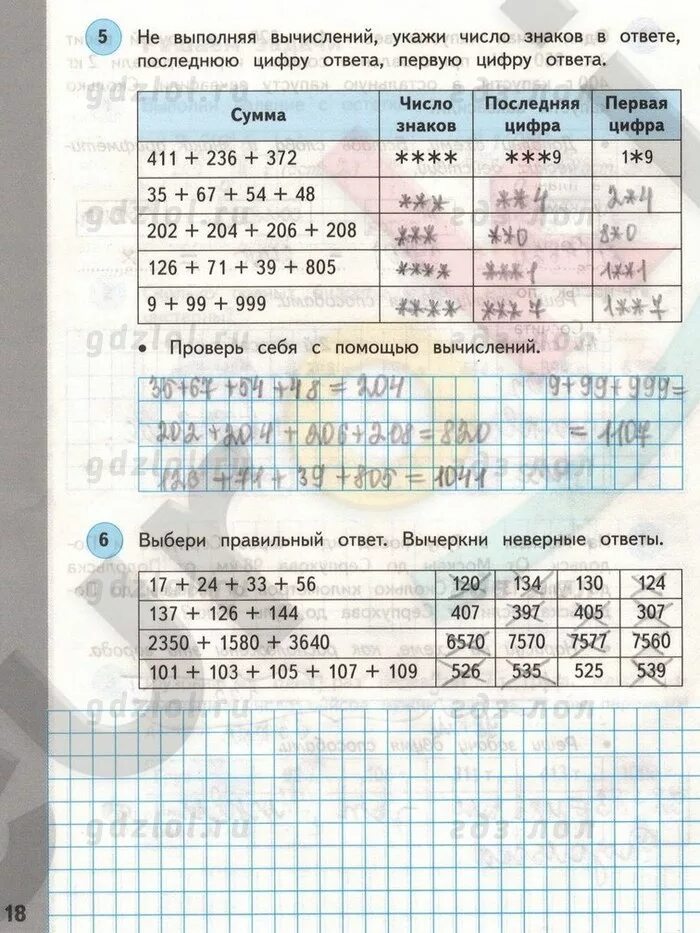 5 Не выполняя вычислений, укажи число знаков в ответе,
последнюю цифру ответа, первую цифру ответа.
Сумма Число знаков Последняя цифра Первая цифра
411 + 236 + 372 **** ***9 1*9
35 + 67 + 54 + 48 *** **4 2*4
202 + 204 + 206 + 208 *** **0 8*0
126 + 71 + 39 + 805 **** ***1 1**1
9 + 99 + 999 **** ***7 1**7
• Проверь себя с помощью вычислений.
35+67+54+48=204 9+99+999=
202+204+206+208=820 =1107
123+71+39+805=1041
6 Выбери правильный ответ. Вычеркни неверные ответы.
17 + 24 + 33 + 56 120 134 130 124
137 + 126 + 144 407 397 405 307
2350 + 1580 + 3640 6570 7570 7577 7560
101 + 103 + 105 + 107 + 109 526 535 525 539
gdzlol.ru гдз лол
18